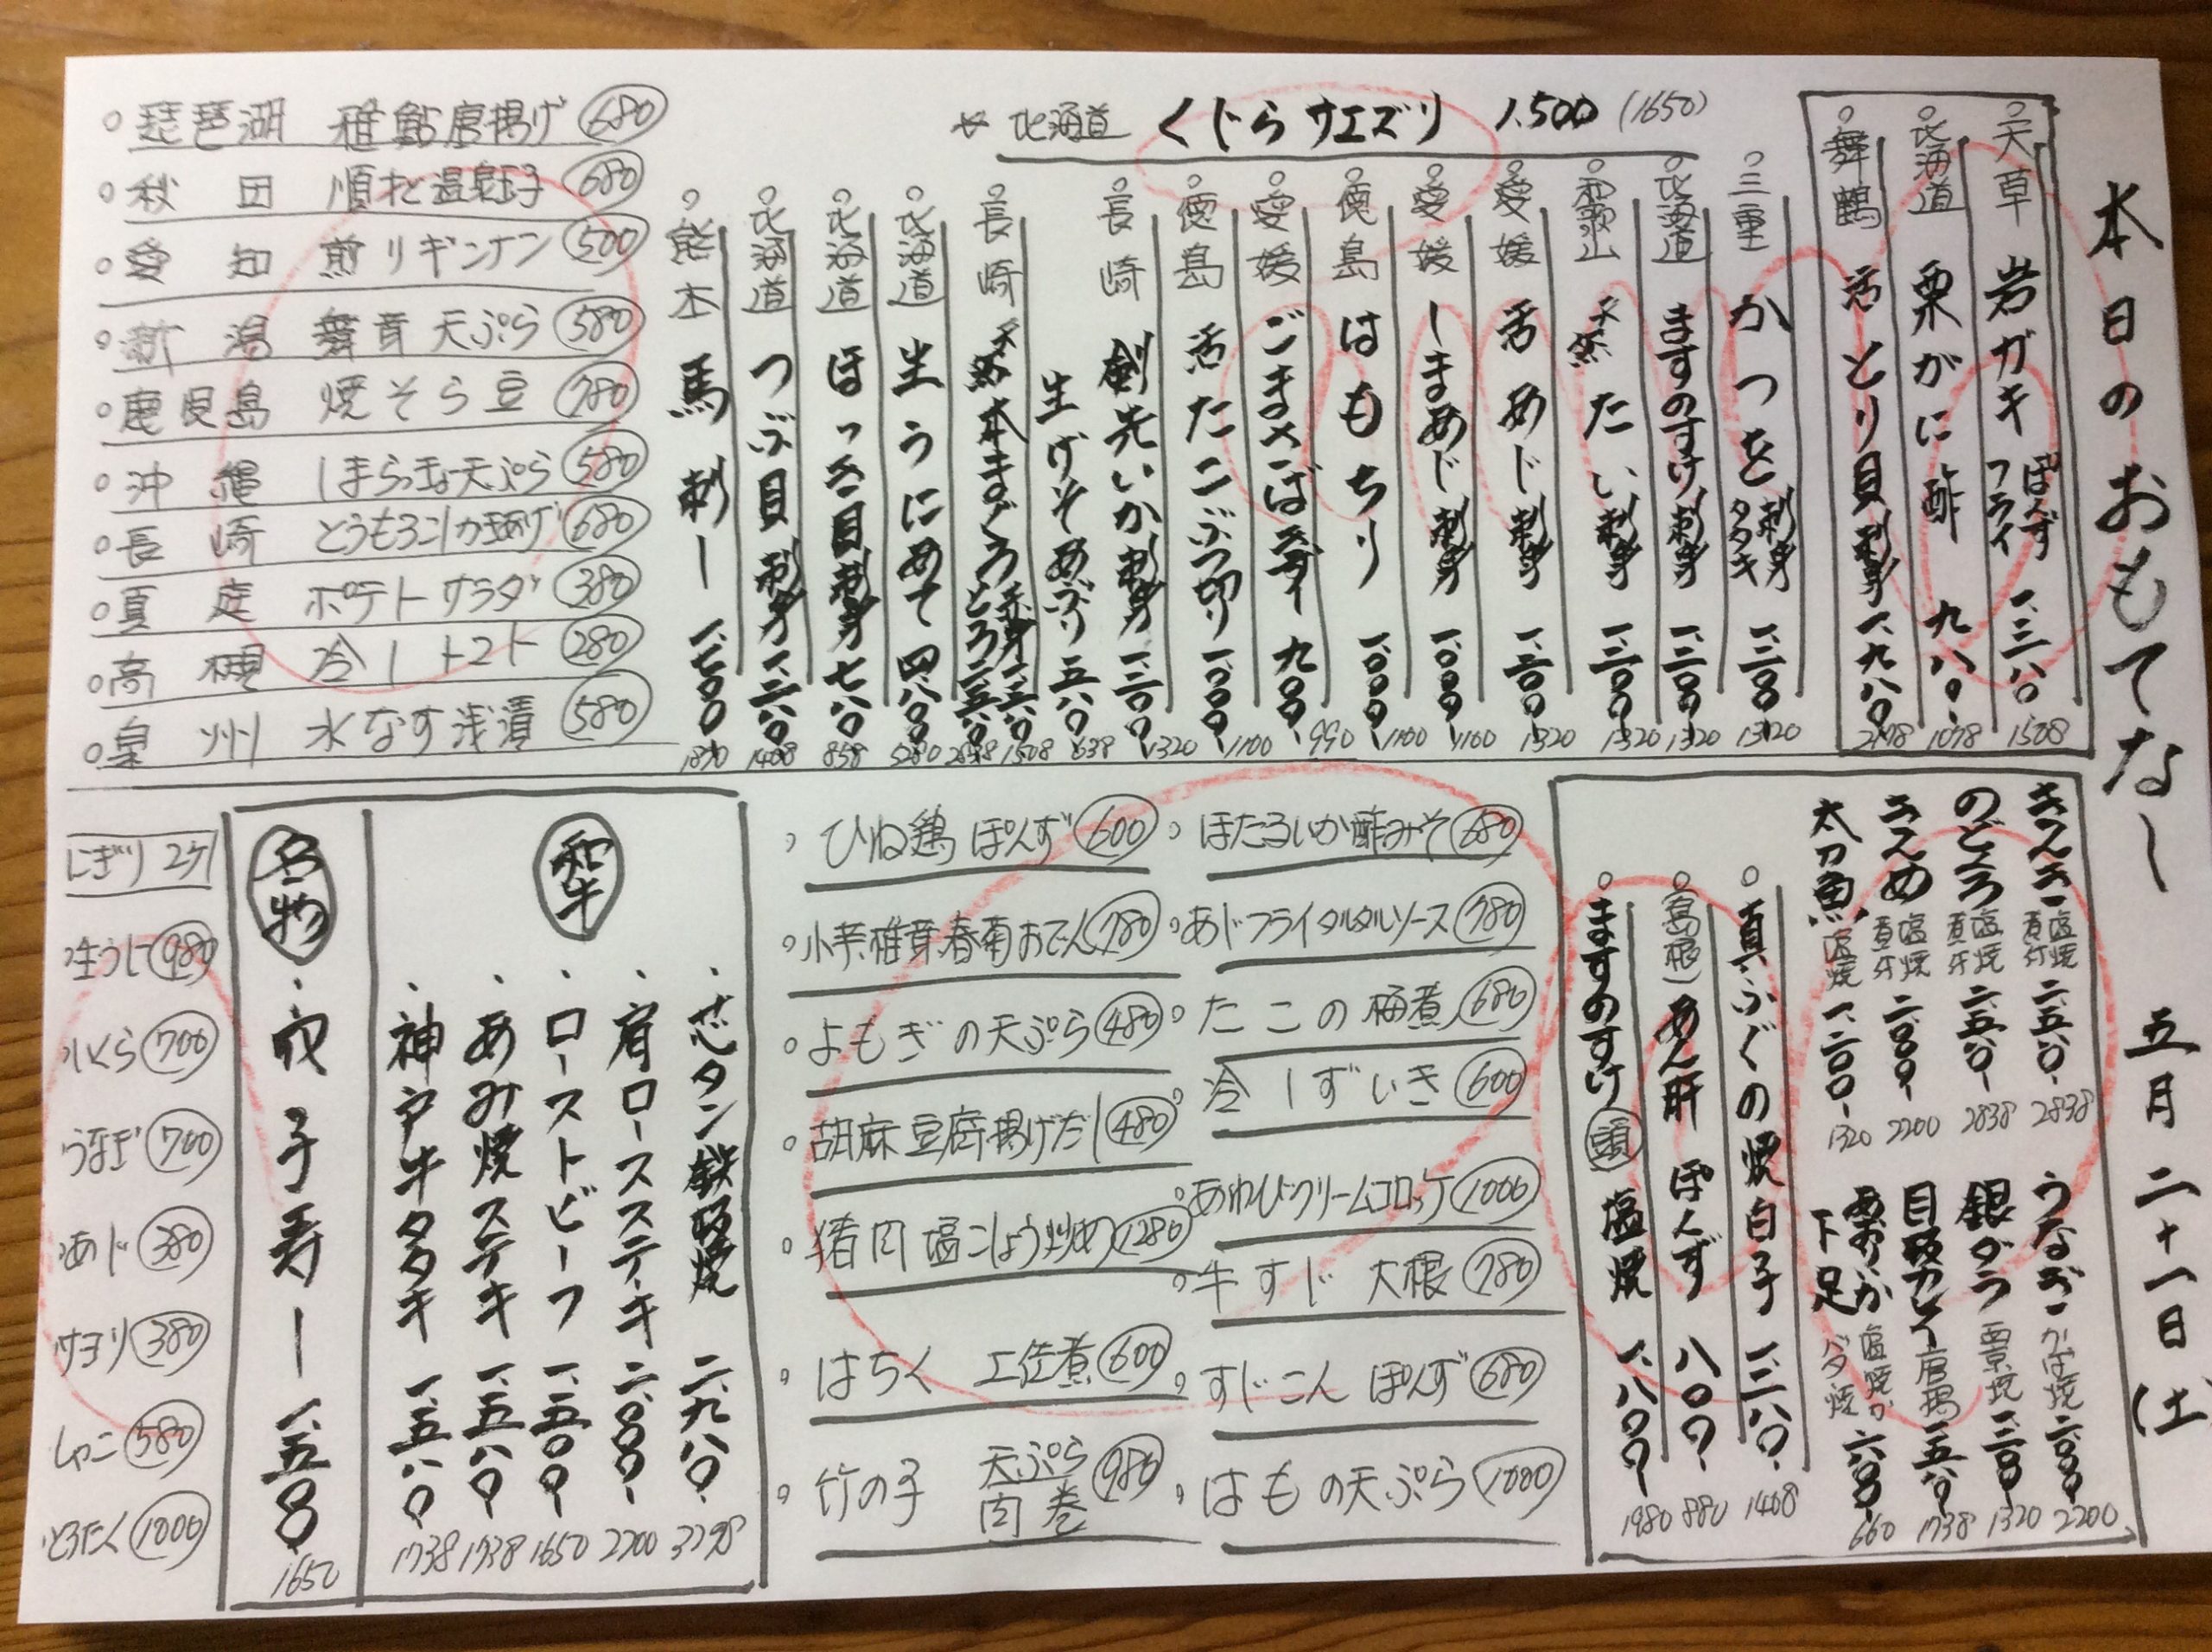 本日のおもてなし 五月二十一日(土)
天草 岩ガキ ぽんず フライ 一、三八〇 1508
北海道 栗がに酢 九八〇 1078
舞鶴 活とり貝刺身 一、九八〇 2178
北海道 くじらサエズリ 1,500 (1650)
三重 かつを 刺身 タタキ 一、二〇〇 1320
北海道 ますのすけ刺身 一、二〇〇 1320
和歌山 天然たい刺身 一、二〇〇 1320
愛媛 活めじ刺身 一、二〇〇 1320
愛媛 しまあじ刺身 一、〇〇〇 1100
徳島 はもちり 一、〇〇〇 1100
愛媛 ごまさばきずし 九〇〇 990
徳島 活たこぶつ切り 一、〇〇〇 1100
長崎 剣先いか刺身 一、二〇〇 1320
生げそあぶり 五八〇 638
長崎 天然本まぐろ 赤身 とろ 1508
北海道 生うにあて 四、八〇〇 5280
北海道 ほっき貝刺身 七八〇 858
北海道 つぶ貝刺身 一、二八〇 1408
熊本 馬刺し 一、七〇〇 1870
琵琶湖 稚鮎唐揚げ 680
秋田 順才温泉玉子 680
愛知 煎りギンナン 500
新潟 舞茸天ぷら 580
鹿児島 焼そら豆 780
沖縄 しまらっきょ天ぷら 580
長崎 とうもろこしかきあげ 680
真庭 ポテトサラダ 380
高槻 冷しトマト 280
泉州 水なす浅漬 580
きんき 塩焼 煮付 二、五八〇 2838
のどぐろ 塩焼 煮付 二、五八〇 2838
きんめ 塩焼 煮付 二、〇〇〇 2200
太刀魚 塩焼 一、二〇〇 1320
うなぎ かば焼 二、〇〇〇 2200
銀ダラ 西京焼 一、二〇〇 1320
目板カレイ 唐揚 一、五八〇 1738
あおりいか 下足 塩焼か バタ焼 六〇〇 660
真ふぐの焼白子 一、二八〇 1408
(島根) あん肝 ぽんず 八〇〇 880
ますのすけ 頭 塩焼 一、八〇〇 1980
ほたるいか酢みそ 680
あじフライタルタルソース 780
たこの梅煮 680
冷しずいき 600
あわびクリームコロッケ 1000
牛すじ大根 780
すじこんぽんず 680
はもの天ぷら 1000
ひね鶏ぽんず 600
小芋椎茸春菊おでん 780
よもぎの天ぷら 480
胡麻豆腐揚げだし 480
猪肉塩こしょう炒め 1280
はちく 土佐煮 600
竹の子 天ぷら 肉巻 980
和牛
芯タン鉄板焼 二、九八〇
肩ロースステーキ 二、〇〇〇 2200
ローストビーフ 一、五〇〇 1650
あみ焼ステーキ 一、五八〇 1738
神戸牛タタキ 一、五八〇 1738
名物
穴子寿し 一、五〇〇 1650
にぎり 2ケ
生うに 980
いくら 700
うなぎ 700
あじ 380
サヨリ 380
しゃこ 580
とろたく 1000